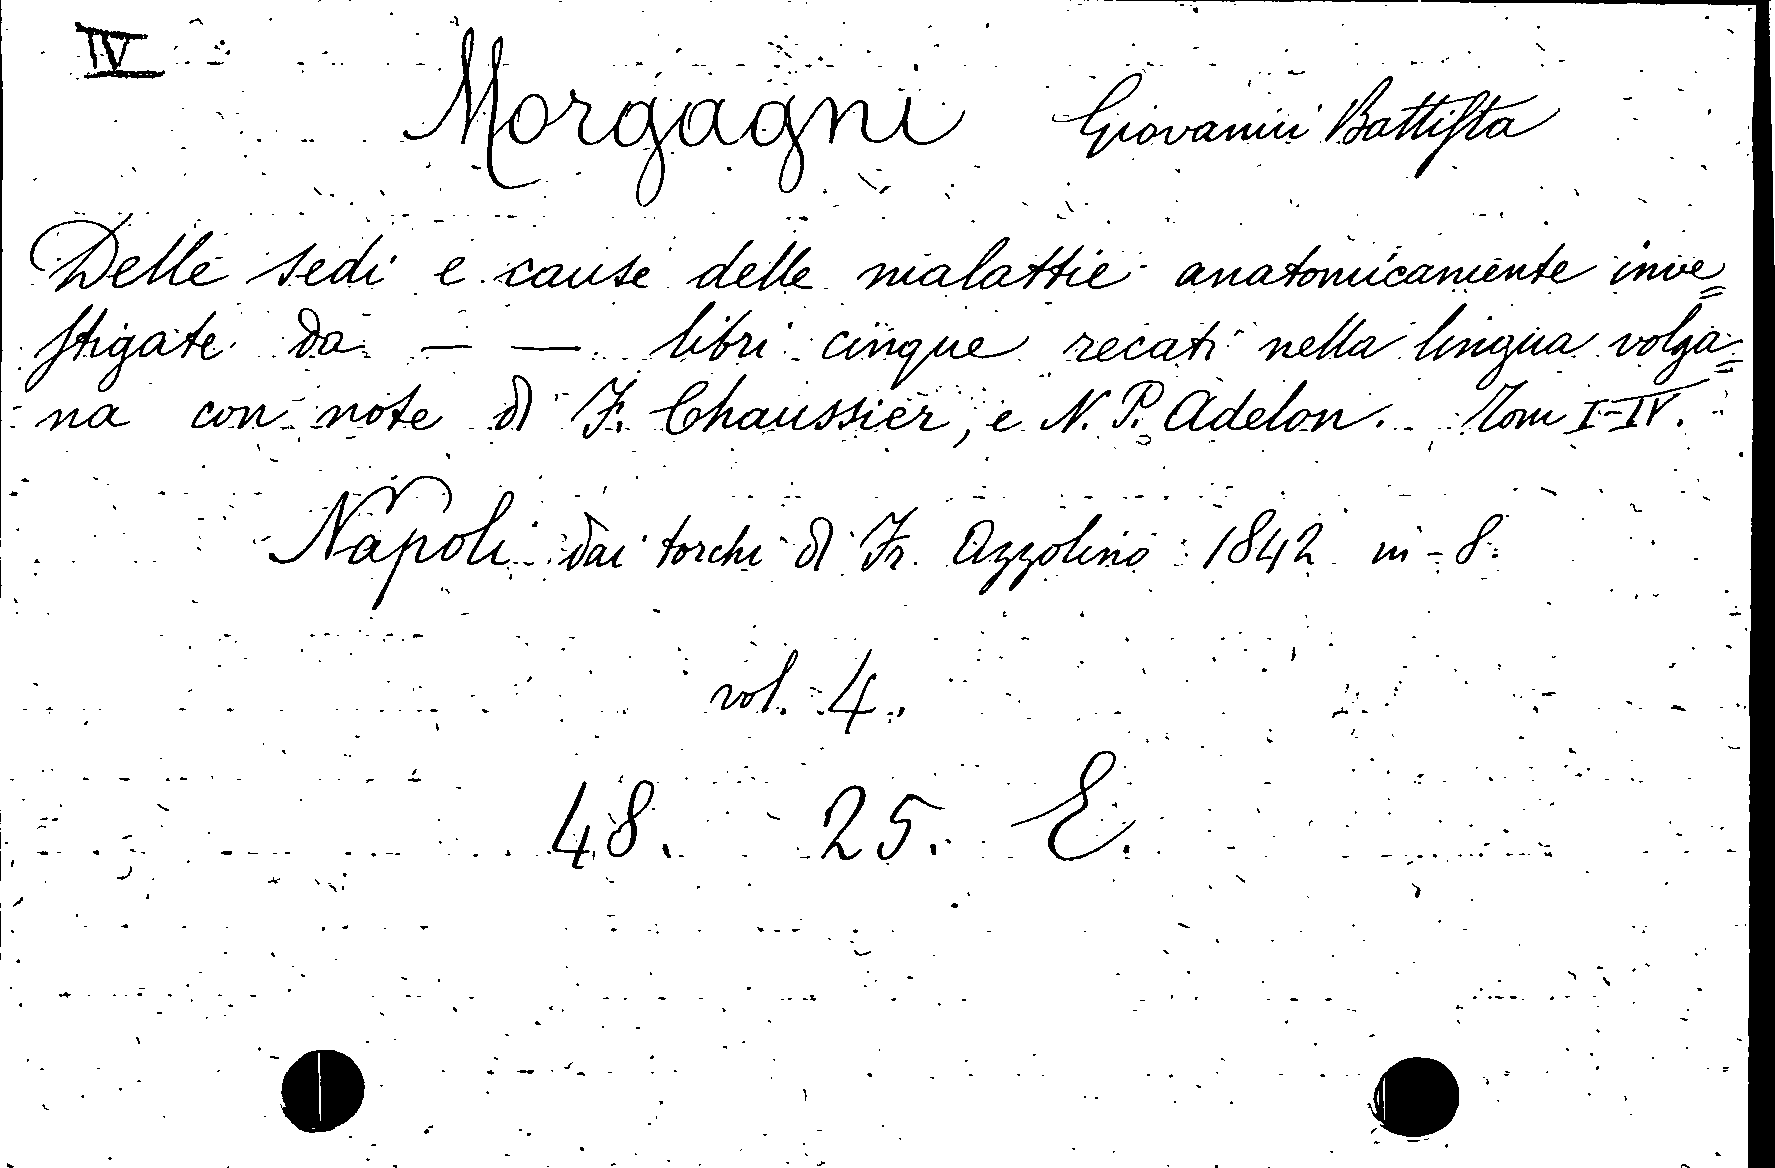 IV
Morgagni Giovanni Battista
Delle sedi e cause delle malattie anatomicamente inve=
stigate da — — libri cinque recati nella lingua volga=
na con note di F. Chaussier, e N. P. Adelon. Tom I-IV.
Napoli dai torchi di Fr. Azzolino 1842 in-8.
vol. 4.
48. 25. E.